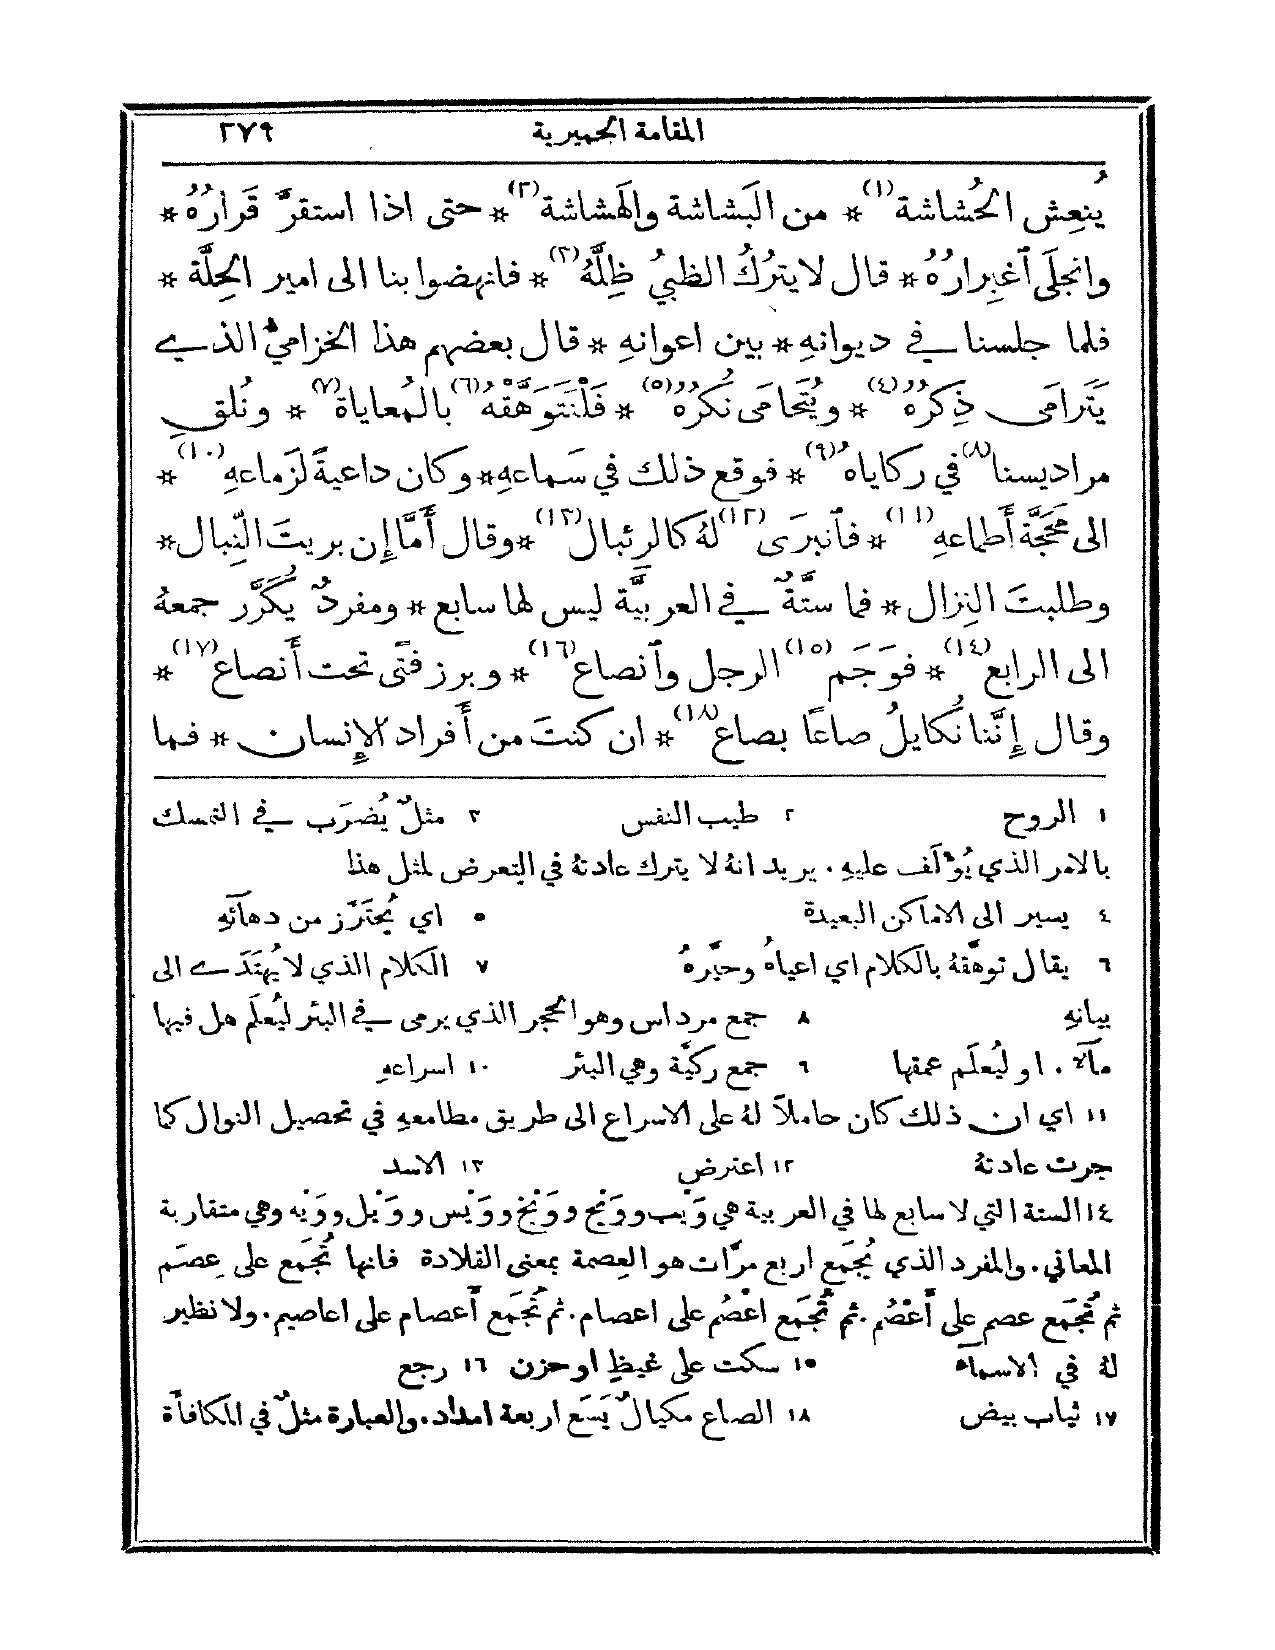 المقامة الحميرية ٢٧٩
يُنعِش الحُشاشة(١) * من البَشاشة والهَشاشة(٢) * حتى اذا استقرَّ قَرارُهُ *
وانجلَى ٱغبِرارُهُ * قال لا يترُكُ الظبيُ ظِلَّهُ(٣) * فانهضوا بنا الى امير الحِلَّة *
فلما جلسنا في ديوانهِ * بين اعوانهِ * قال بعضهم هذا الخزاميُّ الذي
يَترامَى ذِكرُهُ(٤) * ويُتحَامَى نُكرُهُ(٥) * فَلْنَتَوَهَّقْهُ(٦) بالمُعاياة(٧) * ونُلقِي
مراديسنا(٨) في ركاياهُ(٩) * فوقع ذلك في سَماعهِ * وكان داعيةً لزَماعهِ(١٠) *
الى مَحَجَّة أَطماعهِ(١١) * فٱنبَرَى(١٢) لهُ كالرئبال(١٣) * وقال أَمَّا إن بريتَ النِّبال *
وطلبتَ النِزال * فما ستَّةٌ في العربيَّة ليس لها سابع * ومفردٌ يُكرَّر جمعهُ
الى الرابع(١٤) * فوَجَم(١٥) الرجل وٱنصاع(١٦) * وبرز فتًى تحت أَنصاع(١٧) *
وقال إِنَّنا نُكايلُ صاعًا بصاع(١٨) * ان كنتَ من أَفراد الإِنسان * فما
١ الروح ٢ طيب النفس ٣ مثلٌ يُضرَب في التمسك
بالامر الذي يُؤْلَف عليهِ . يريد انهُ لا يترك عادتهُ في التعرض لمثل هذا
٤ يسير الى الاماكن البعيدة ٥ اي يُحتَرَز من دهآئهِ
٦ يقال توهَّقهُ بالكلام اي اعياهُ وحيَّرهُ ٧ الكلام الذي لا يُهتَدَى الى
بيانهِ ٨ جمع مرداس وهو الحجر الذي يرمى في البئر ليُعلَم هل فيها
مآء . او ليُعلَم عمقها ٩ جمع ركيَّة وهي البئر ١٠ اسراعهِ
١١ اي ان ذلك كان حاملاً لهُ على الاسراع الى طريق مطامعهِ في تحصيل النوال كما
جرت عادتهُ ١٢ اعترض ١٣ الاسد
١٤ الستة التي لا سابع لها في العربية هي وَيْب ووَيْح ووَيْخ ووَيْس ووَيْل ووَيْه وهي متقاربة
المعاني . والمفرد الذي يُجمَع اربع مرَّات هو العِصمة بمعنى القلادة فانها تُجمَع على عِصَم
ثم تُجمَع عصم على أَعْصُم . ثم تُجمَع اعصُم على اعصام . ثم تُجمَع أَعصام على اعاصيم . ولا نظير
لهُ في الاسماء ١٥ سكت على غيظٍ او حزن ١٦ رجع
١٧ ثياب بيض ١٨ الصاع مكيالٌ يَسَع اربعة امداد . والعبارة مثلٌ في المكافأة